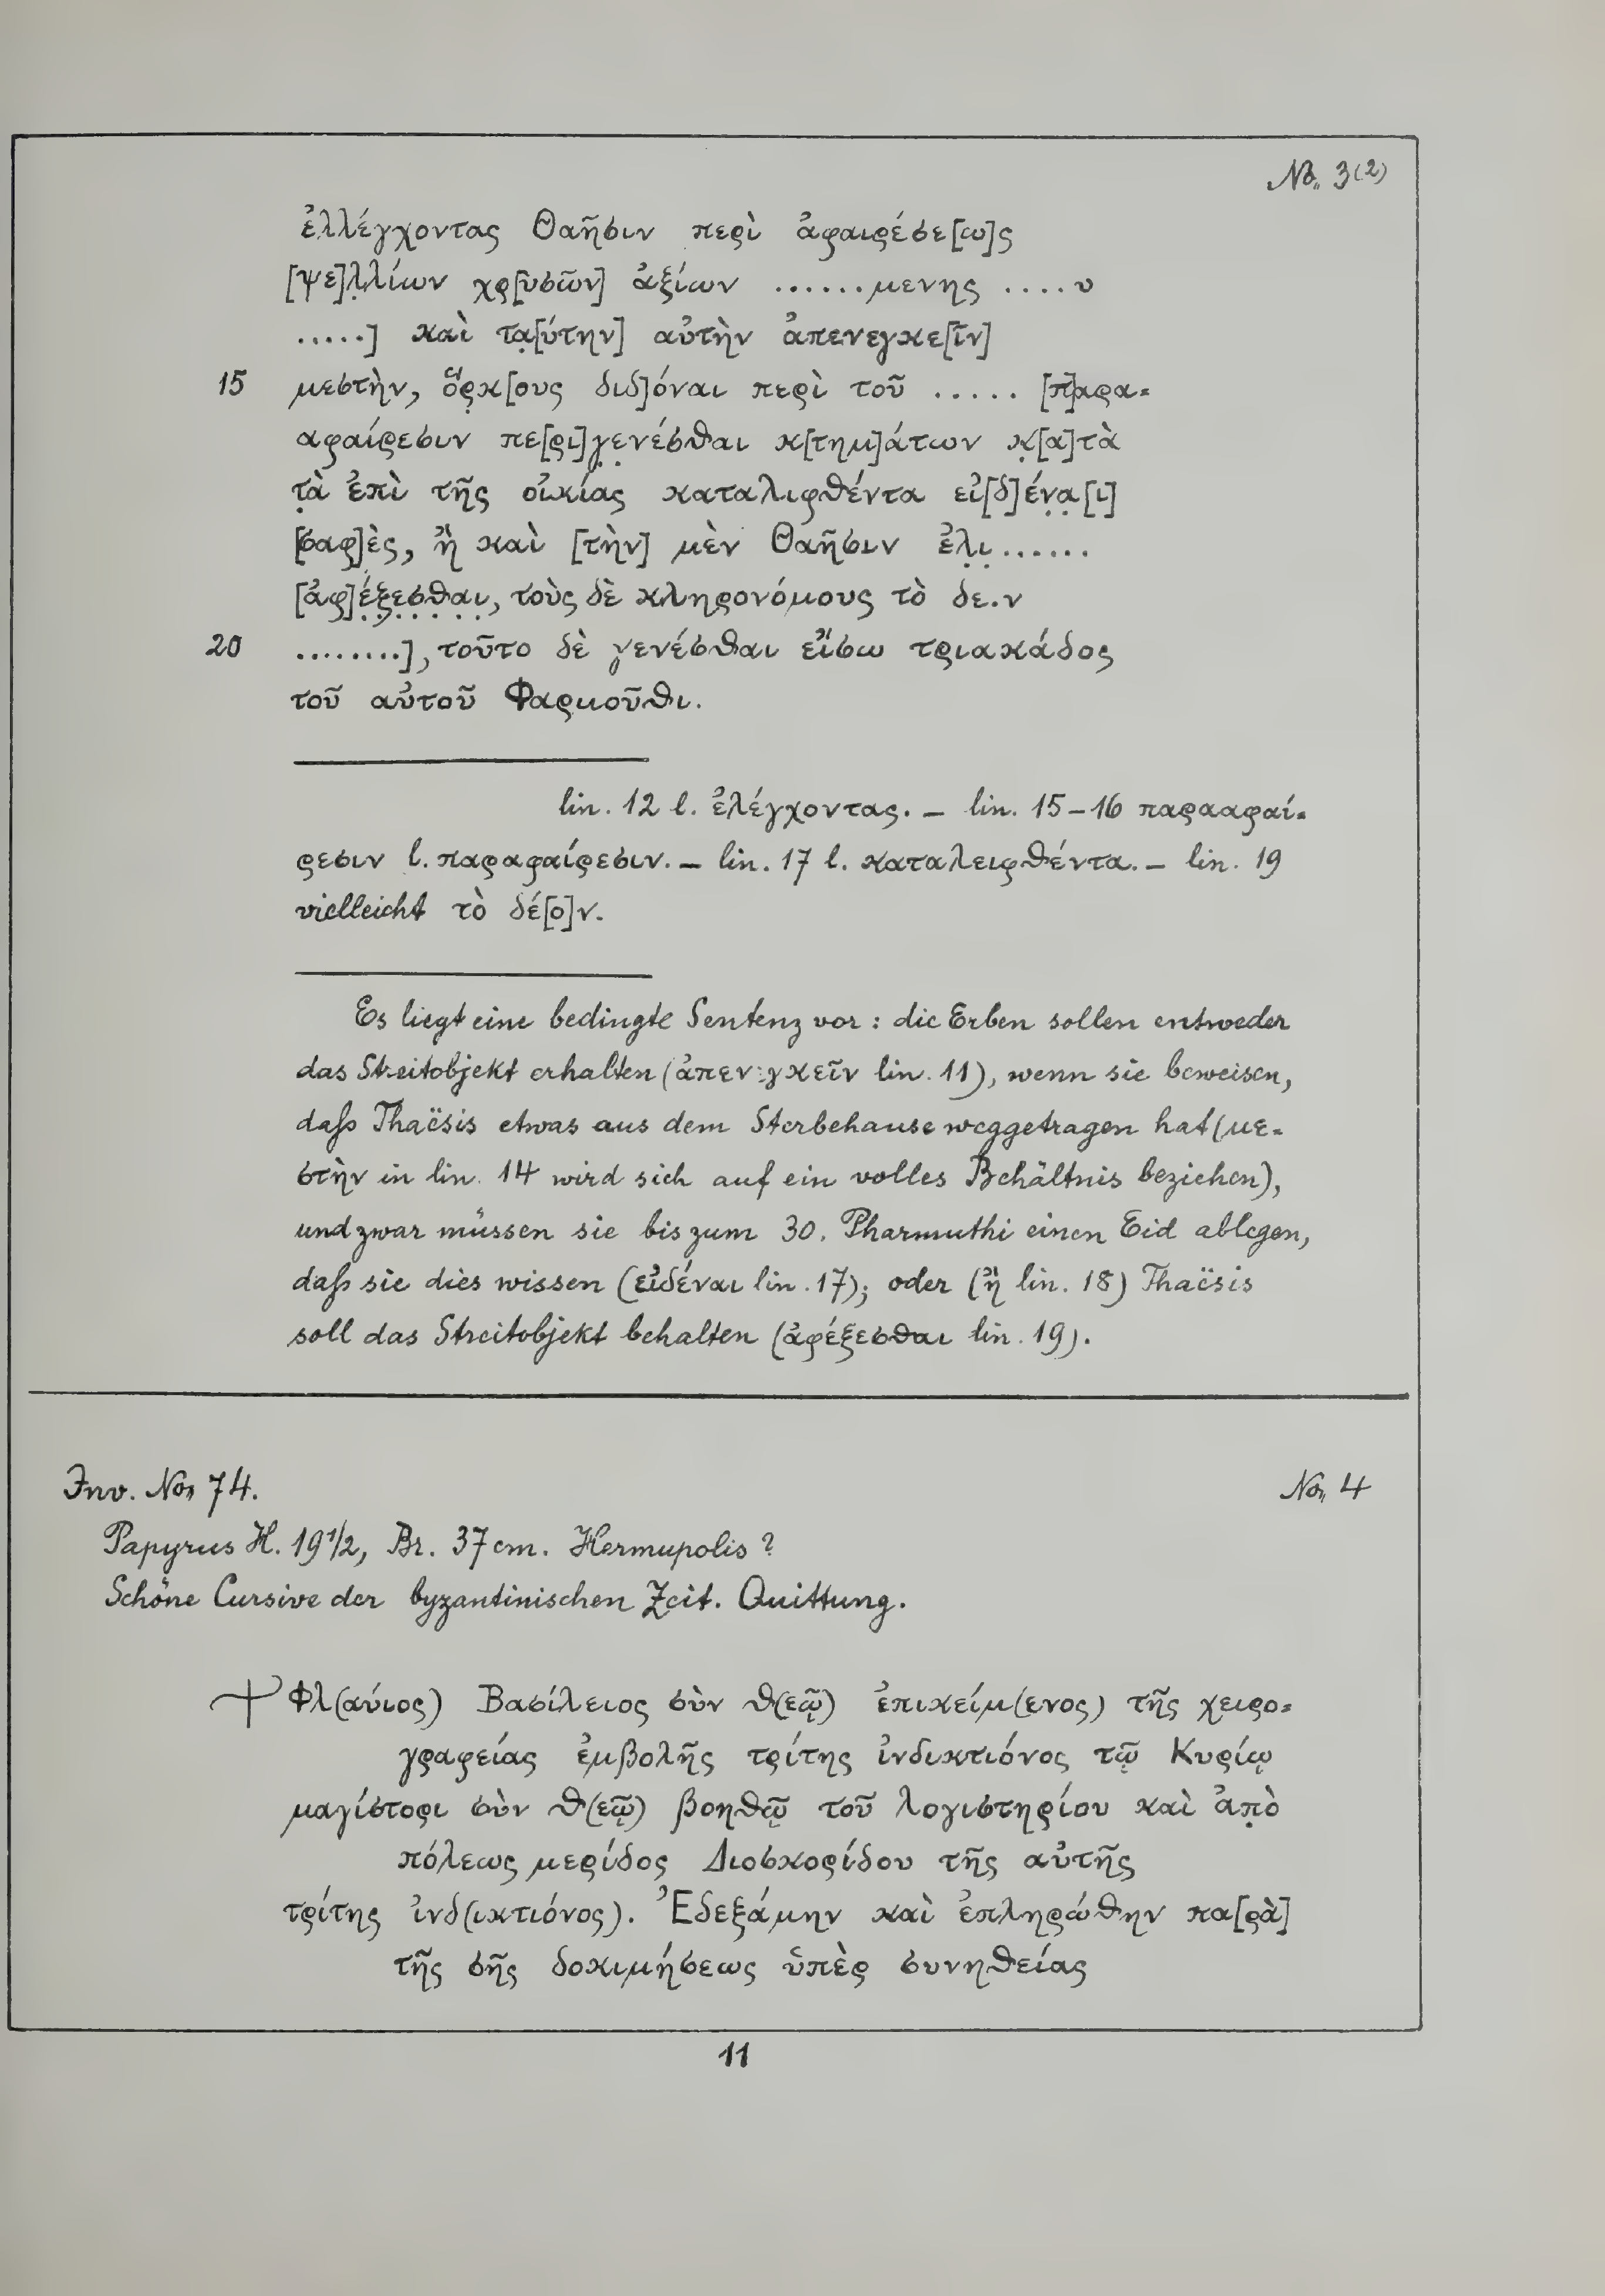 No. 3(2)
ἐλλέγχοντας Θαῆσιν περὶ ἀφαιρέσε[ω]ς
[ψε]λ̣λίων χρ[υσῶν] ἀξίων ......μενης ....υ
.....] καὶ τα̣[ύτην] αὐτὴν ἀπενεγκε[ῖν]
15 μεστὴν, ὅρ̣κ[ους διδ]όναι περὶ τοῦ ..... [π]αρα-
αφαίρεσιν πε[ρι]γ̣ε̣νέσθαι κ[τημ]άτων κ̣[α]τὰ
τ̣ὰ ἐπὶ τῆς οἰκίας καταλιφθέντα εἰ[δ]έν̣α̣[ι]
[σαφ]ὲς, ἢ καὶ [τὴν] μὲν Θαῆσιν ἐλ̣ι̣......
[ἀφ]έ̣ξ̣ε̣σ̣θ̣α̣ι̣, τοὺς δὲ κληρονόμους τὸ δε.ν
20 ........], τοῦτο δὲ γενέσθαι εἴσω τριακάδος
τοῦ αὐτοῦ Φαρμοῦθι.
lin. 12 l. ἐλέγχοντας. – lin. 15–16 παρααφαί-
ρεσιν l. παραφαίρεσιν. – lin. 17 l. καταλειφθέντα. – lin. 19
vielleicht τὸ δέ[ο]ν.
Es liegt eine bedingte Sentenz vor: die Erben sollen entweder
das Streitobjekt erhalten (ἀπενεγκεῖν lin. 11), wenn sie beweisen,
daß Thaësis etwas aus dem Sterbehause weggetragen hat (με-
στὴν in lin. 14 wird sich auf ein volles Behältnis beziehen),
und zwar müssen sie bis zum 30. Pharmuthi einen Eid ablegen,
daß sie dies wissen (εἰδέναι lin. 17); oder (ἢ lin. 18) Thaësis
soll das Streitobjekt behalten (ἀφέξεσθαι lin. 19).
Inv. No. 74. No. 4
Papyrus H. 19½, Br. 37 cm. Hermupolis ?
Schöne Cursive der byzantinischen Zeit. Quittung.
☩ Φλ(αύιος) Βασίλειος σὺν θ(εῷ) ἐπικείμ(ενος) τῆς χειρο-
γραφείας ἐμβολῆς τρίτης ἰνδικτιόνος τῷ Κυρίῳ
μαγίστορι σὺν θ(εῷ) βοηθῷ τοῦ λογιστηρίου καὶ ἀπ̣ὸ
πόλεως μερίδος Διοσκορίδου τῆς αὐτῆς
τρίτης ἰνδ(ικτιόνος). Ἐδεξάμην καὶ ἐπληρώθην πα[ρὰ]
τῆς σῆς δοκιμήσεως ὑπὲρ συνηθείας
11